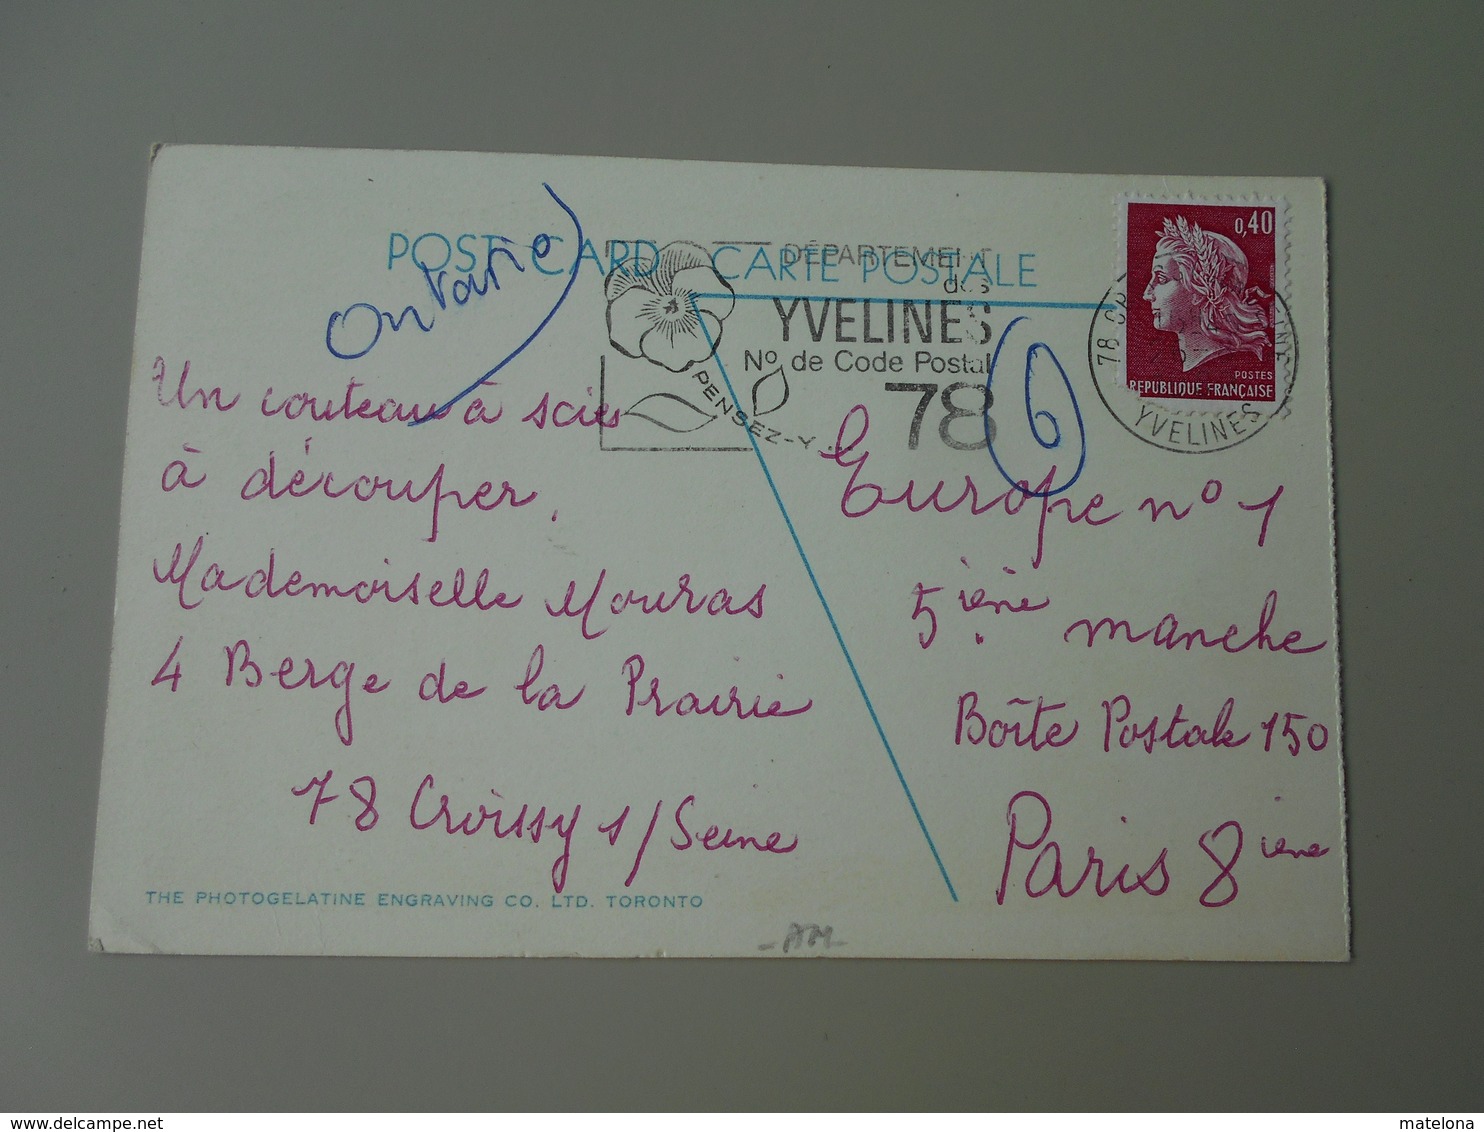 POST CARD CARTE POSTALE
Ontario
DÉPARTEMENT
des
YVELINES
No de Code Postal
78
PENSEZ-Y...
6
0,40
POSTES
REPUBLIQUE FRANÇAISE
78
YVELINES
Un couteau à scies
à découper.
Mademoiselle Mouras
4 Berge de la Prairie
78 Croissy s/Seine
Europe no 1
5ième manche
Boîte Postale 150
Paris 8ième
THE PHOTOGELATINE ENGRAVING CO. LTD. TORONTO
-AM-
© matelona
https://www.delcampe.net